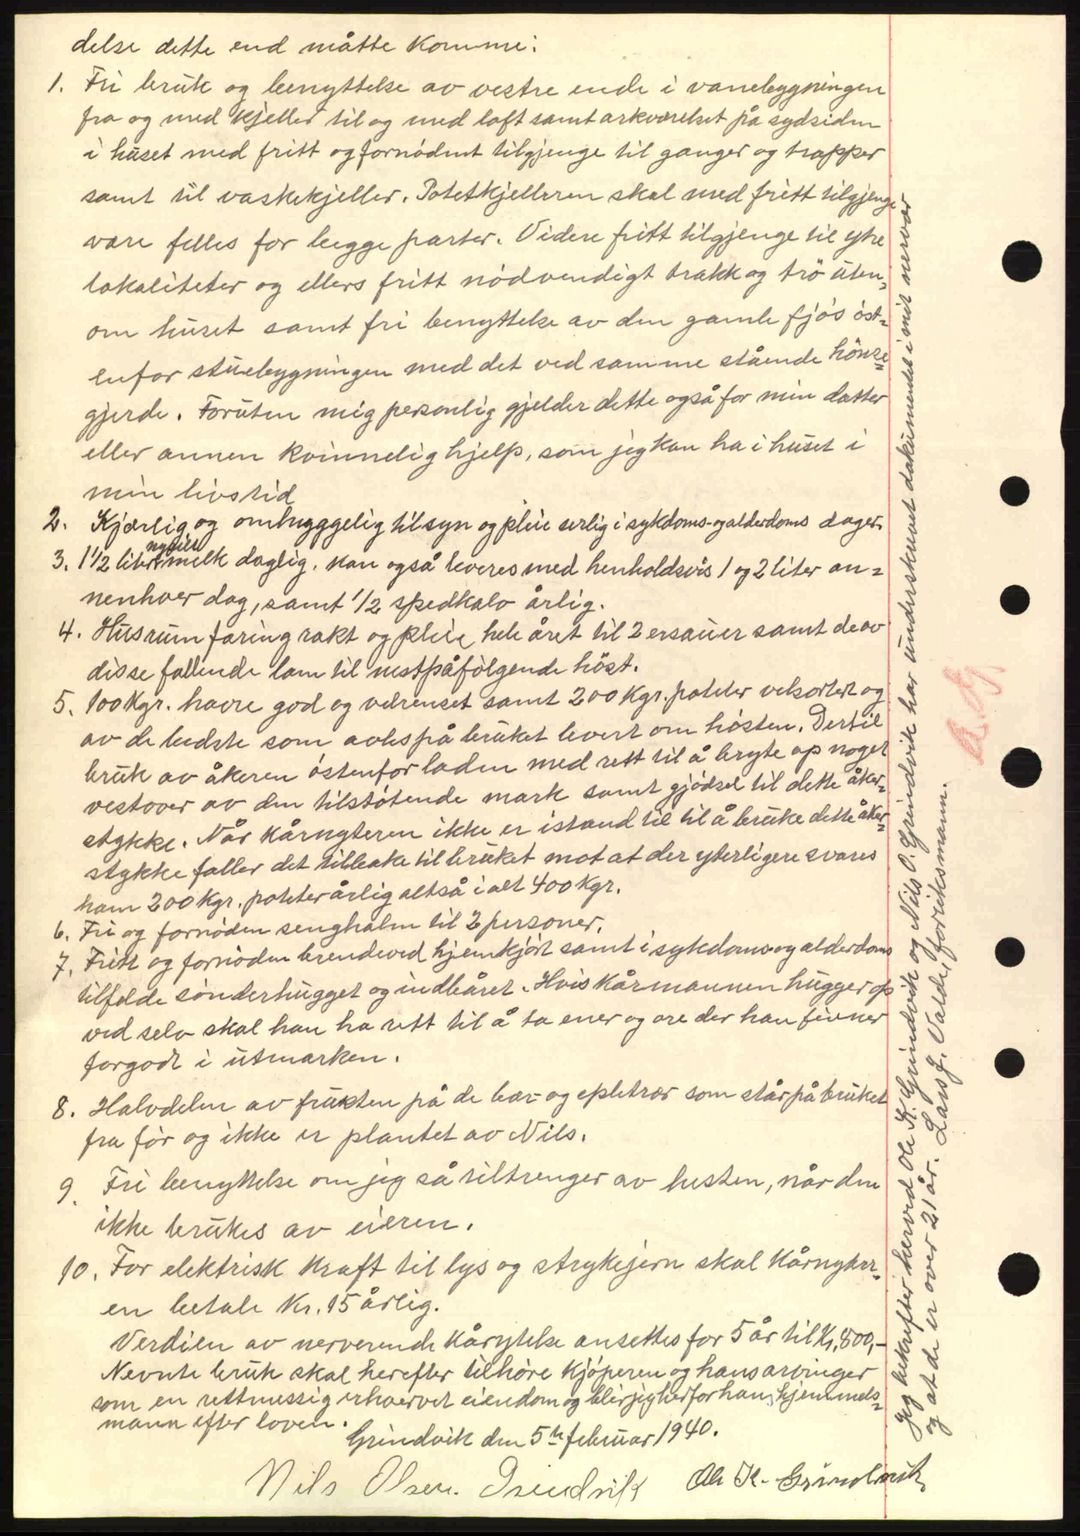 delse dette end måtte komme:
1. Fri bruk og benyttelse av vestre ende i vånebygningen
fra og med kjeller til og med loft samt arkværelset på sydsiden
i huset med fritt og fornödent tilgjenge til ganger og trapper
samt til vaskekjeller. Potetkjelleren skal med fritt tilgjenge
være felles for begge parter. Videre fritt tilgjenge til ytre
lokaliteter og ellers fritt nödvendigt trakk og trö uten-
om huset samt fri benyttelse av den gamle fjös öst-
enfor stuebygningen med det ved samme stående hönse-
gjerde. Foruten mig personlig gjelder dette også for min datter
eller annen kvinnelig hjelp, som jeg kan ha i huset i
min livstid
2. Kjærlig og omhygggelig tilsyn og pleie serlig i sykdoms- og alderdoms dager.
3. 1 1/2 liter nysilt melk daglig. kan også leveres med henholdsvis 1 og 2 liter an-
nenhver dag, samt 1/2 spedkalv årlig.
4. Husrum foring røkt og pleie hele året til 2 ersauer samt de av
disse fallende lam til nestpåfölgende höst.
5. 100 kgr. havre god og velrenset samt 200 kgr. poteter velsortert og
av de bedste som avles på bruket levert om hösten. Dertil
bruk av åkeren östenfor laden med rett til å bryte op noget
vestover av den tilstötende mark samt gjödsel til dette åker-
stykke. Når kårnyteren ikke er istand til til å bruke dette åker-
stykke faller det tilbake til bruket mot at der yterligere svares
ham 200 kgr. poteter årlig altså i alt 400 kgr.
6. Fri og fornöden senghalm til 2 personer.
7. Fritt og fornöden brendeved hjemkjört samt i sykdoms- og alderdoms
tilfelde sönderhugget og indbåret. Hvis kårmannen hugger op
ved selv skal han ha rett til å ta ener og ore der han finner
forgodt i utmarken.
8. Halvdelen av frukten på de bær- og epletrær som står på bruket
fra för og ikke er plantet av Nils.
9. Fri benyttelse om jeg så tiltrenger av hesten, når den
ikke brukes av eieren.
10. For elektrisk kraft til lys og strykejern skal kårnyter-
en betale kr. 15 årlig.
Verdien av nerverende kårytelse ansettes for 5 år til kr. 800,-
Nevnte bruk skal herefter tilhöre kjöperen og hans arvinger
som en rettmessig erhvervet eiendom og blir jeg herfor hans hjemmels-
mann efter loven.
Grindvik den 5te februar 1940.
Nils Olsen Grindvik Ole K. Grindvik
Jeg bekrefter herved Ole K. Grindvik og Nils O. Grindvik har underskrevet dokumentet i mit nervær
og at de er over 21 år. Lars J. Valde, forliksmann.